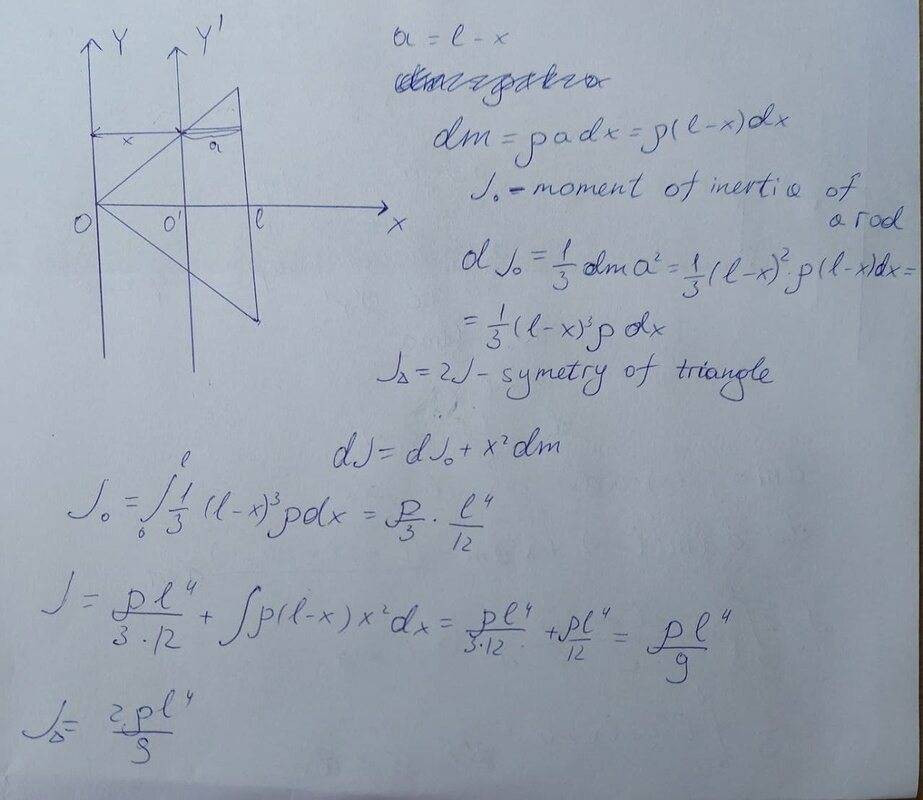 Y Y'
a = l - x
x a
dm = ρ a dx = ρ(l-x)dx
J₀ - moment of inertia of
a rod
O O' l x
dJ₀ = 1/3 dm a² = 1/3 (l-x)² · ρ(l-x)dx =
= 1/3 (l-x)³ρ dx
J△ = 2J - symetry of triangle
dJ = dJ₀ + x² dm
J₀ = ∫₀ˡ 1/3 (l-x)³ ρdx = ρ/3 · l⁴/12
J = ρl⁴/3·12 + ∫ρ(l-x)x²dx = ρl⁴/3·12 + ρl⁴/12 = ρl⁴/9
J△ = 2ρl⁴/9